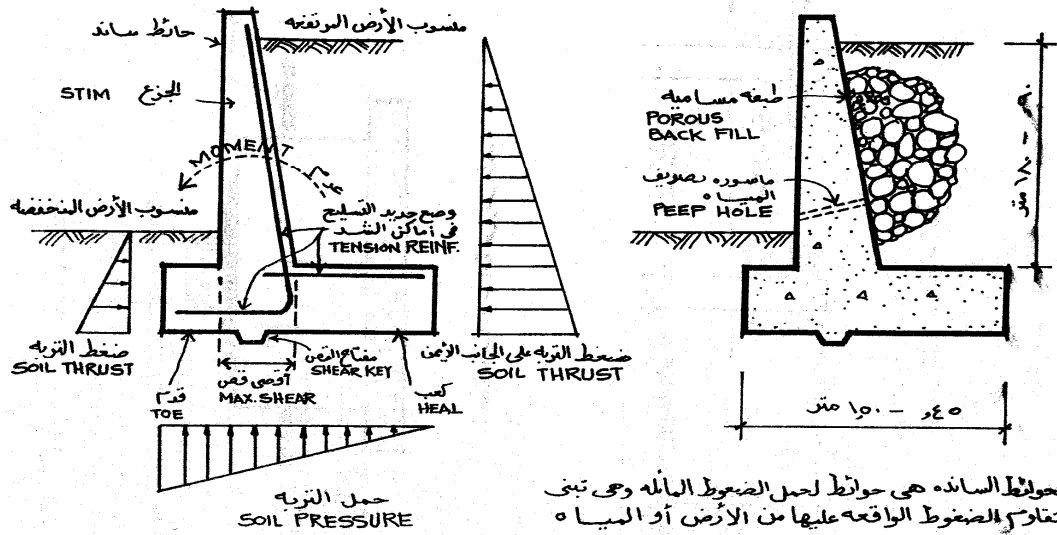 منسوب الأرض المرتفعه
حائط ساند
STIM الجزع
MOMENT
عزم
منسوب الأرض المنخفضه
وضع حديد التسليح
في أماكن الشد
TENSION REINF.
ضغط التربه
SOIL THRUST
قدم
TOE
أقصى قص
MAX. SHEAR
مفتاح القص
SHEAR KEY
كعب
HEAL
ضغط التربه على الجانب الأيمن
SOIL THRUST
حمل التربه
SOIL PRESSURE
طبقه مساميه
POROUS
BACK FILL
ماسوره تصريف
المياه
PEEP HOLE
متر
٤٥و - ١,٥٠ متر
حوائط السانده هى حوائط لحمل الضغوط المائله وهى تبنى
تقاوم الضغوط الواقعه عليها من الأرض أو المياه